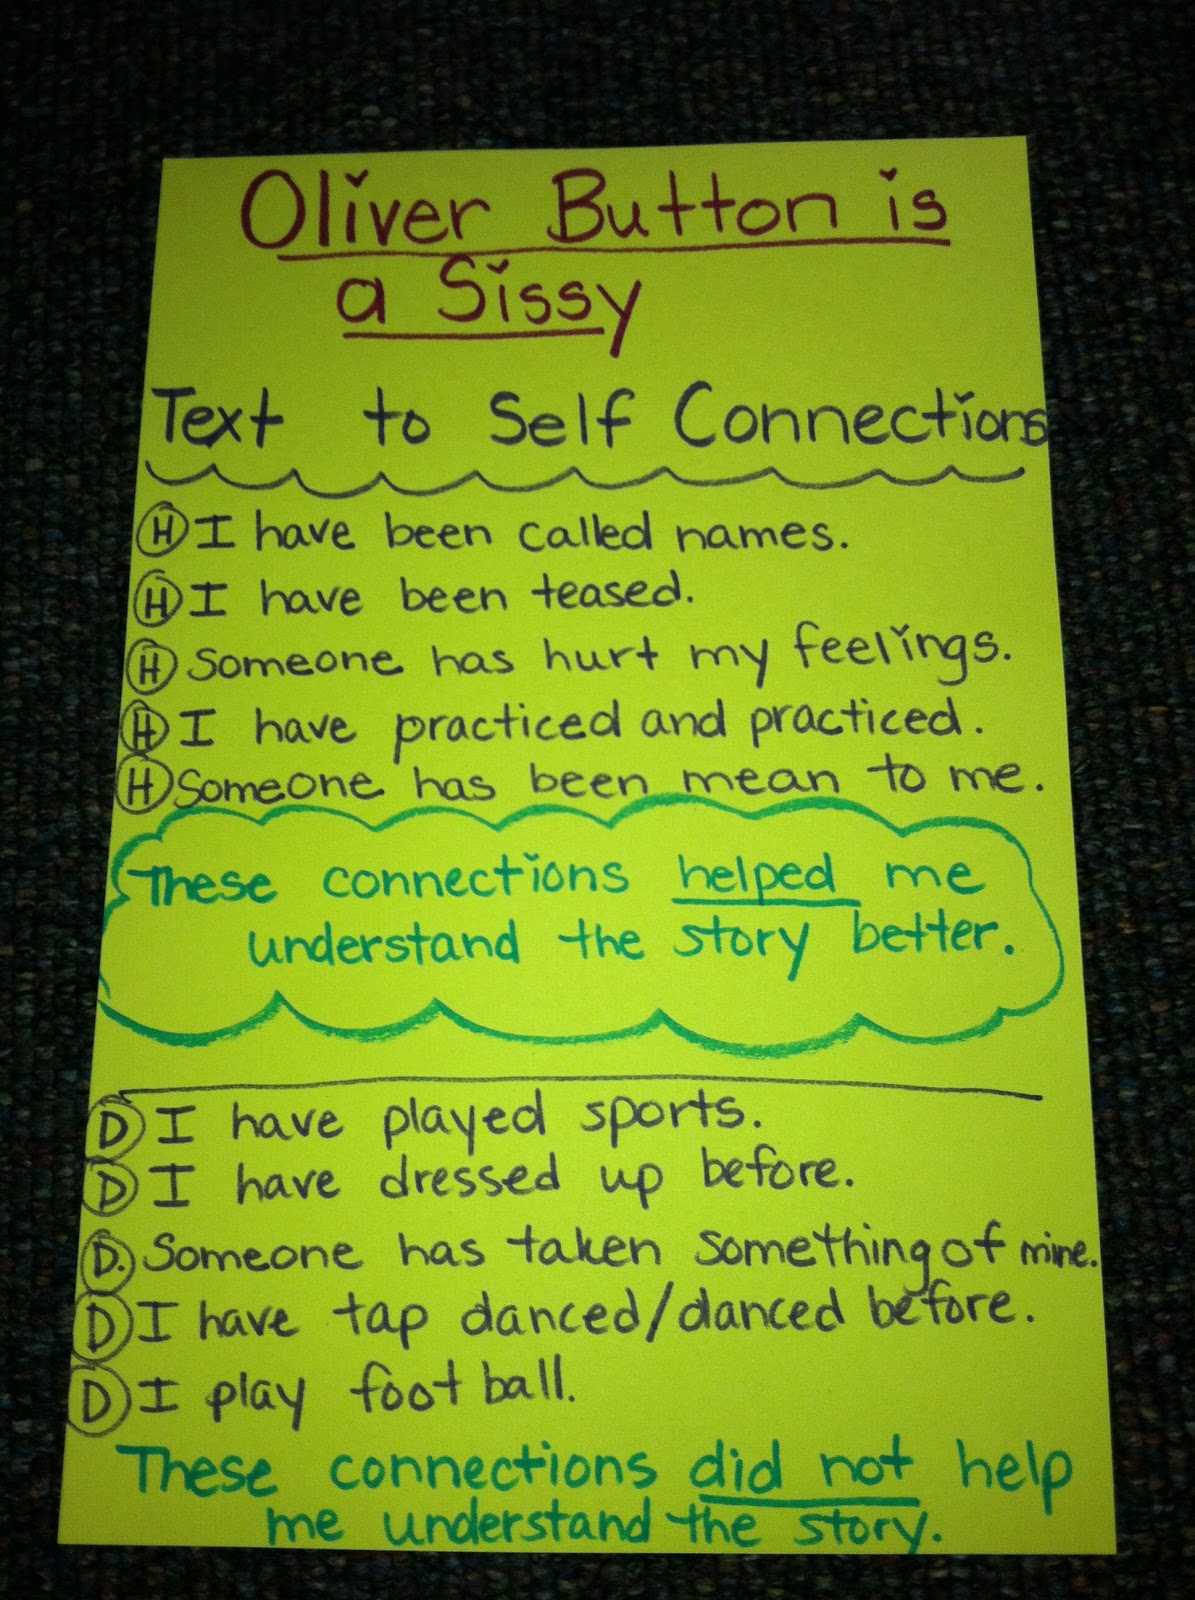 Oliver Button is
a Sissy
Text to Self Connections
H I have been called names.
H I have been teased.
H Someone has hurt my feelings.
H I have practiced and practiced.
H Someone has been mean to me.
These connections helped me
understand the story better.
D I have played sports.
D I have dressed up before.
D. Someone has taken something of mine.
D I have tap danced/danced before.
D I play foot ball.
These connections did not help
me understand the story.